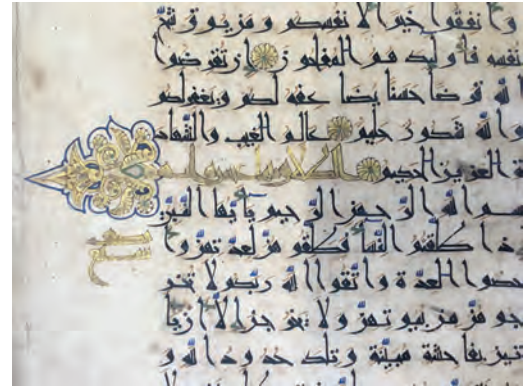 وانفقوا خيرا لانفسكم ومن يوق شح
نفسه فاوليك هم المفلحون ان تقرضوا
الله قرضا حسنا يضاعفه لكم ويغفر لكم
والله شكور حليم عالم الغيب والشهاد
ة العزيز الحكيم الطلاق
بسم الله الرحمن الرحيم يايها النبي
اذا طلقتم النسا فطلقوهن لعدتهن وا
حصوا العدة واتقوا الله ربكم لا تخر
جوهن من بيوتهن ولا يخرجن الا ان يا
تين بفاحشة مبينة وتلك حدود الله و